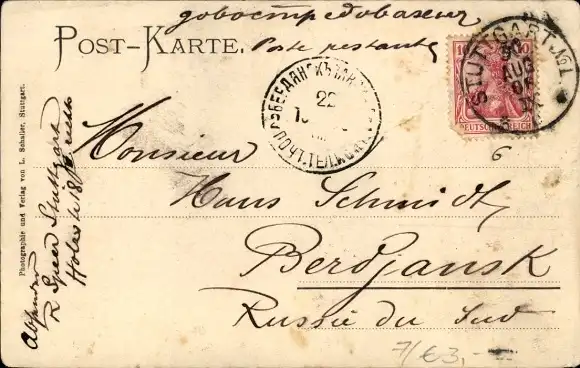 до востребования
POST-KARTE.
Poste restante
STUTTGART No. 1
AUG
10
10
DEUTSCHES REICH
22
6
Monsieur
Hans Schmidt,
Berdjansk
Russie du Sud
Absender
R Speer Stuttgart
Photographie und Verlag von L. Schaller, Stuttgart.
7/€3,-